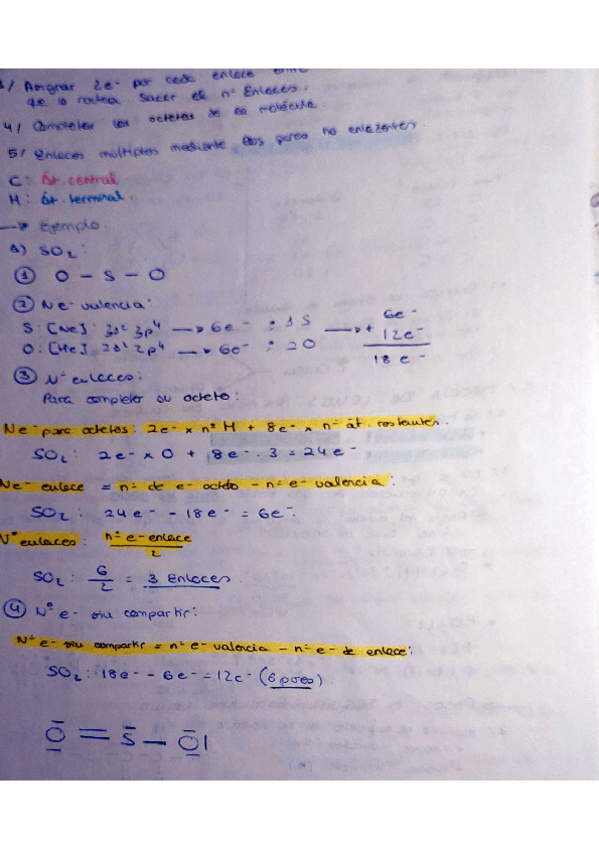 3/ Asignar 2e- por cada enlace entre
que lo rodea. Sacar el nº Enlaces.
4/ Completar los octetos de la molécula.
5/ Enlaces múltiples mediante los pares no enlazantes.
C: Át. central
H: Át. terminal
→ Ejemplo.
1) SO2:
① O — S — O
② Ne- valencia:
S: [Ne]: 3s2 3p4 → 6e- : 1 S → 6e-
O: [He]. 2s2 2p4 → 6e- : 2 O + 12e-
18 e-
③ Nº enlaces:
Para completar su octeto:
Ne- para octetos: 2e- x nº H + 8e- x nº át. restantes.
SO2: 2e- x 0 + 8e- · 3 = 24e-
Ne- enlace = nº de e- octeto - nº e- valencia:
SO2: 24e- - 18e- = 6e-
Nº enlaces: nº e- enlace / 2
SO2: 6/2 = 3 Enlaces
④ Nº e- sin compartir:
Nº e- sin compartir = nº e- valencia - nº e- de enlace:
SO2: 18e- - 6e- = 12e- (6 pares)
O = S — O|